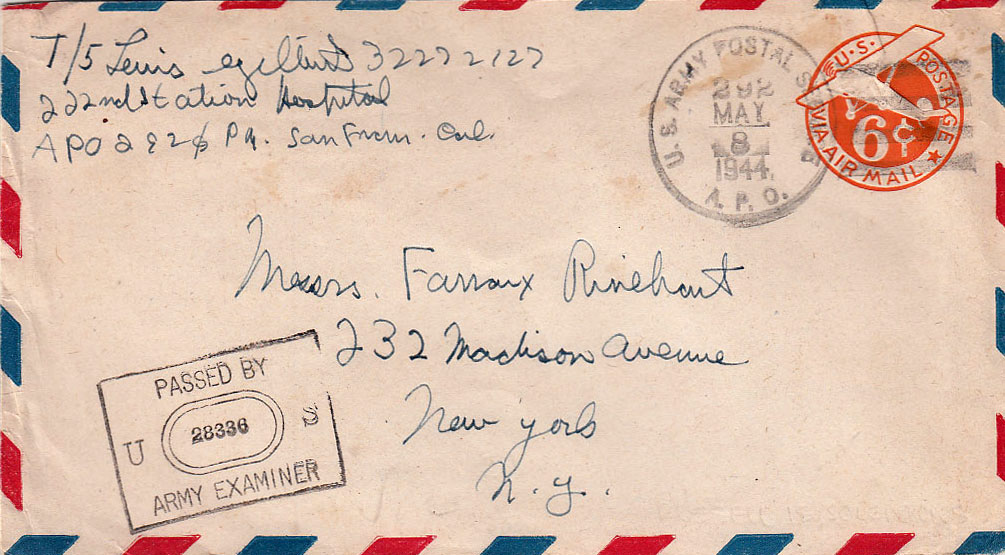 T/5 Lewis 32272127
222nd Station Hospital
APO 2 % P.M. San Fran. Cal.
U.S. ARMY POSTAL S
292
MAY
8
1944
A.P.O.
U.S. POSTAGE
6¢
VIA AIR MAIL
Messrs. Farrar Rinehart
232 Madison Avenue
New York
N.Y.
PASSED BY
U 28336 S
ARMY EXAMINER